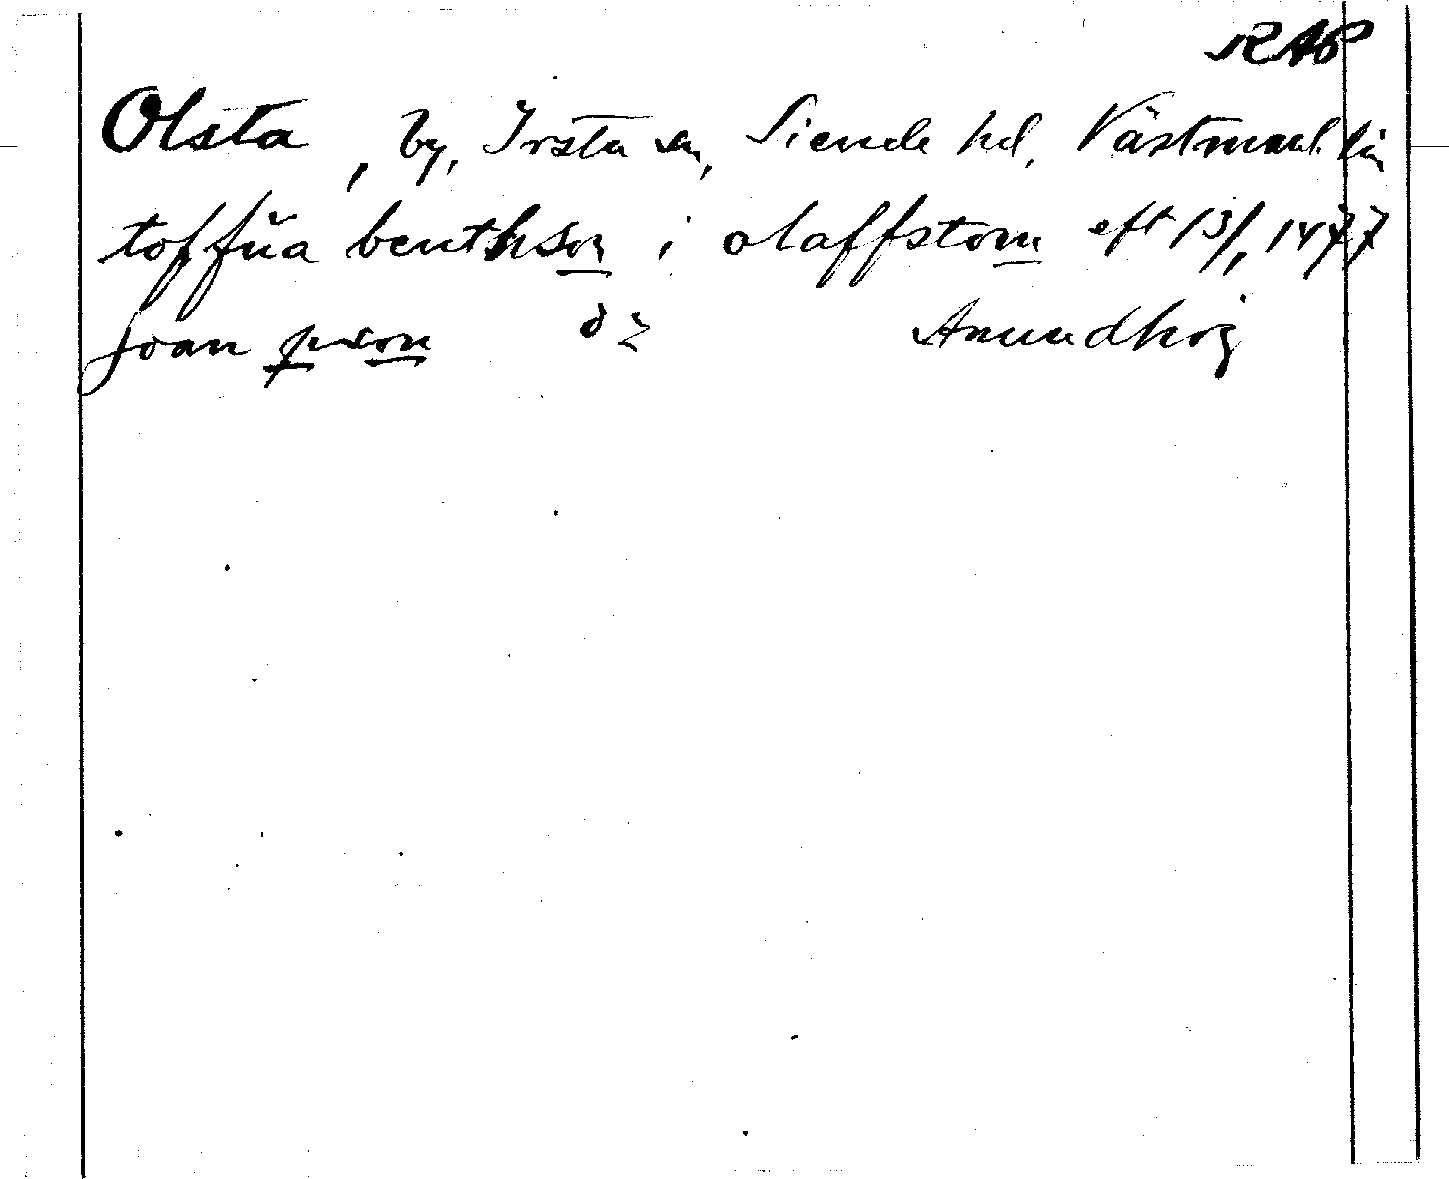 RAP
Olsta, by, Irsta sn, Siende hd, Västmanl. län
toffúa benthson i olaffstom eft 13/1 1477
joan pson do Anundhög